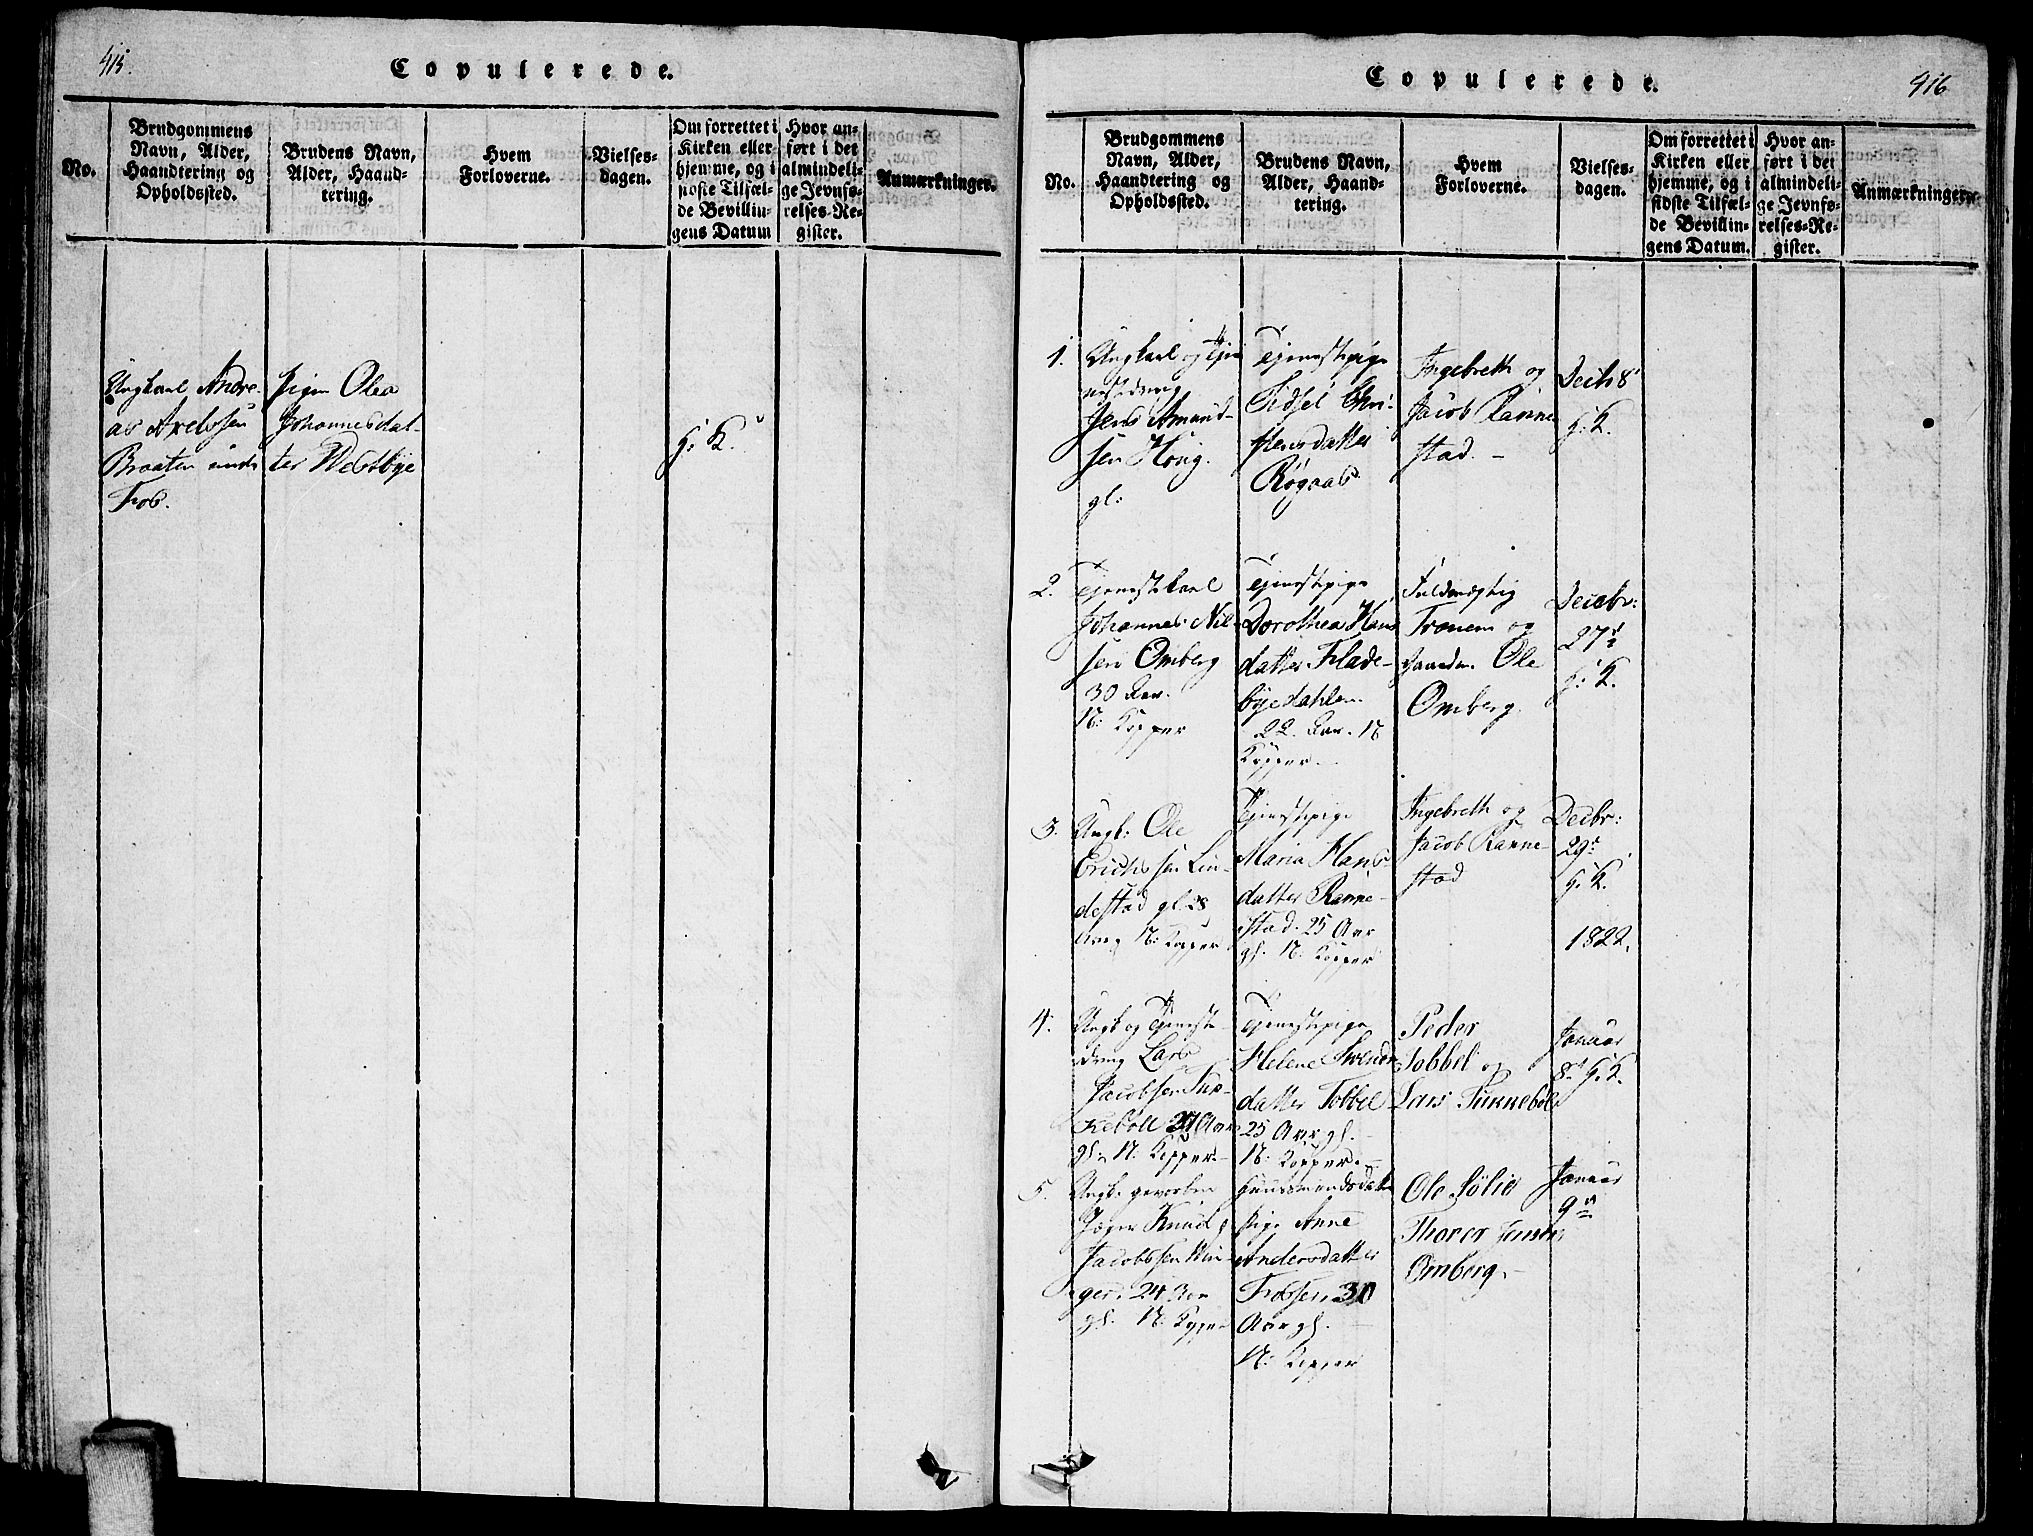 415.
Copulerede.
No.
Brudgommens
Navn, Alder,
Haandtering og
Opholdssted.
Brudens Navn,
Alder, Haand-
tering.
Hvem
Forloverne.
Vielses-
dagen.
Om forrettet i
Kirken eller
hjemme, og i
sidste Tilfæl-
de Bevillin-
gens Datum
Hvor an-
ført i det
almindeli-
ge Jevnfø-
relses-Re-
gister.
Anmærkninger.
Ungkarl Andre-
as Axelssen
Braaten
Fos.
Pigen Olea
Johannesdat-
ter Westbye
K.
416
Copulerede.
No.
Brudgommens
Navn, Alder,
Haandtering og
Opholdssted.
Brudens Navn,
Alder, Haand-
tering.
Hvem
Forloverne.
Vielses-
dagen.
Om forrettet i
Kirken eller
hjemme, og i
sidste Tilfæl-
de Bevillin-
gens Datum.
Hvor an-
ført i det
almindeli-
ge Jevnfø-
relses-Re-
gister.
Anmærkninger.
1.
Ungkarl og Tjen
nestedreng
Jens Amund-
sen Houg.
gl:
Tjenestepige
Sidsel Chri-
stensdatter
Røgaas
Ingebreth og
Jacob Ranne
stad. –
Decb 8
K.
2.
Tjenestekarl
Johannes Nil-
sen Omberg
30 Aar.
N: Kopper
Tjenestepige
Dorothea Hans
datter Flade-
byedahlen
22. Aar. N
Kopper.
Fuldmægtig
Tronem og
Ole
Omberg.
Decbr:
27d
K.
3.
Ungk: Ole
Erichssen Lin-
destad gl. 28
Aar N: Kopper
Tjenestepige
Maria Hans
datter Ranne-
stad. 25 Aar
gl. N: Kopper
Ingebreth og
Jacob Ranne-
stad
Decbr:
29d
K.
1822.
4.
Ungk og Tjeneste-
dreng Lars
Jacobsen
Aar
gl. N: Kopper.
Tjenestepige
Helene Svends
datter Tobbel
25 Aar gl.
N: Kopper.
Peder
Tobbel og
Lars
Januar
8d K.
5.
Ungk. gevorben
Jæger Knud
Jacobssen
24 Aar
gl. N: Kopper
Huusmandsdatter
Pige Anne
Andersdatter
Fossen, 30
Aar gl.
N: Kopper
Ole Sølie
Thorer Jensen
Omberg. –
Januar
9d